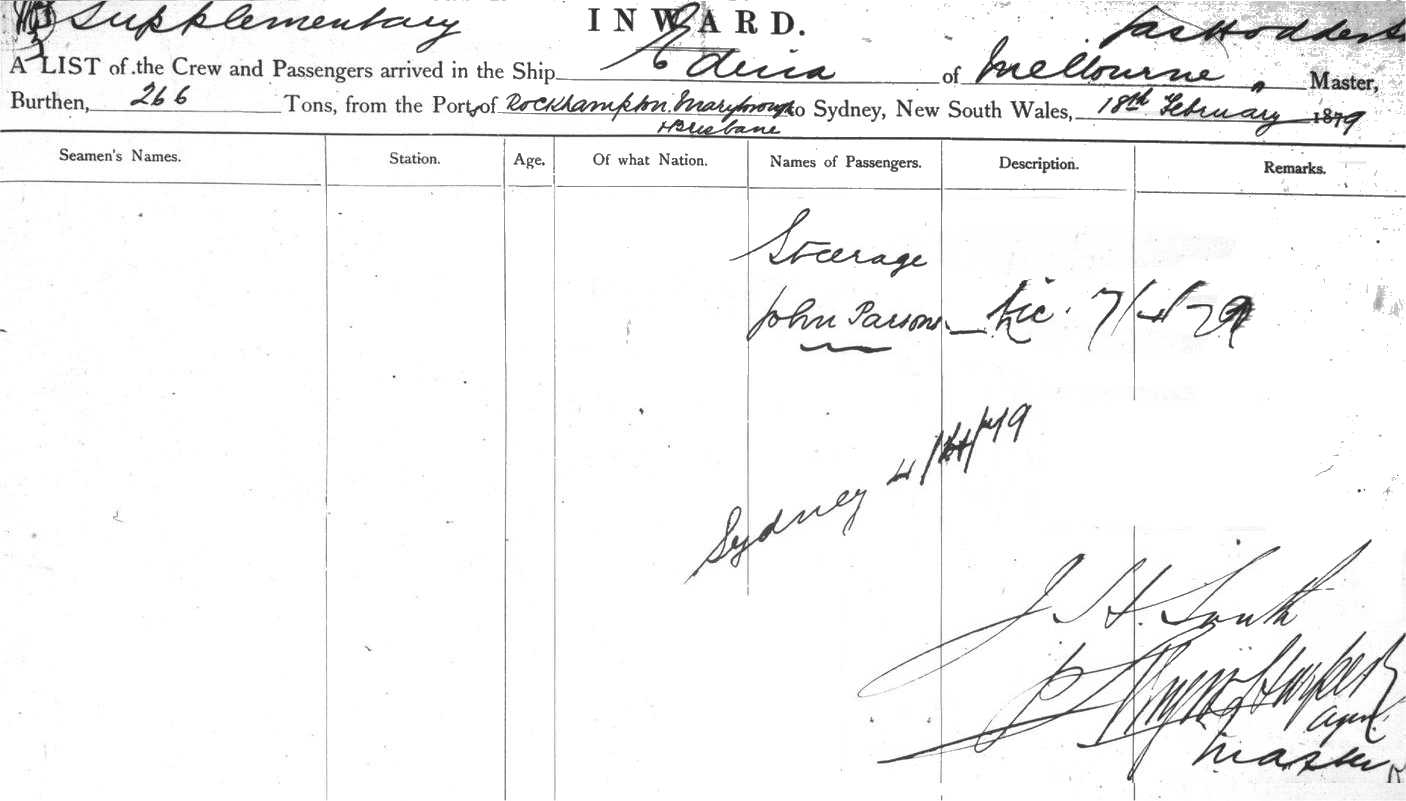 Supplementary
INWARD.
A LIST of the Crew and Passengers arrived in the Ship Edina of Melbourne, Jas Hodder Master,
Burthen, 266 Tons, from the Port, of Rockhampton. Maryborough to Sydney, New South Wales, 18th February 1879
+ Brisbane
Seamen's Names. Station. Age. Of what Nation. Names of Passengers. Description. Remarks.
Steerage
John Parsons
Sydney
J. H.
Agent
Master